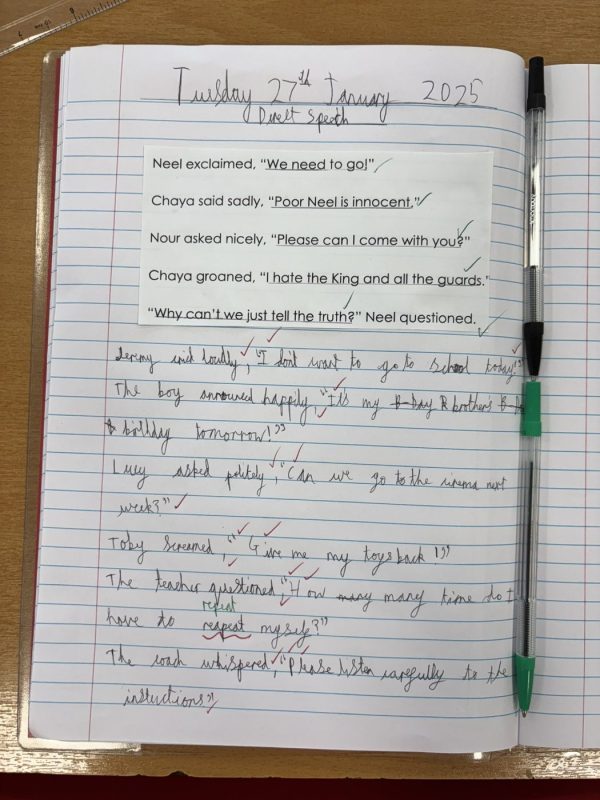 Tuesday 27th January 2025
Direct Speech
Neel exclaimed, “We need to go!”
Chaya said sadly, “Poor Neel is innocent.”
Nour asked nicely, “Please can I come with you?”
Chaya groaned, “I hate the King and all the guards.”
“Why can’t we just tell the truth?” Neel questioned.
Jeremy said loudly, “I don't want to go to school today!”
The boy announced happily, “It's my B-Day R brother's
birthday tomorrow!”
Lucy asked politely, “Can we go to the cinema next
week?”
Toby screamed, “Give me my toys back!”
The teacher questioned, “How many many time do I
repeat
have to reapeat myself?”
The coach whispered, “Please listen carefully to the
instuctions”